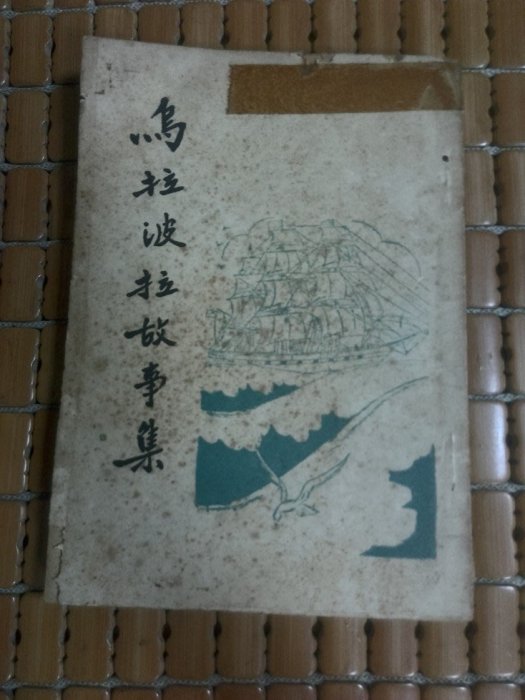 嗚拉波拉故事集